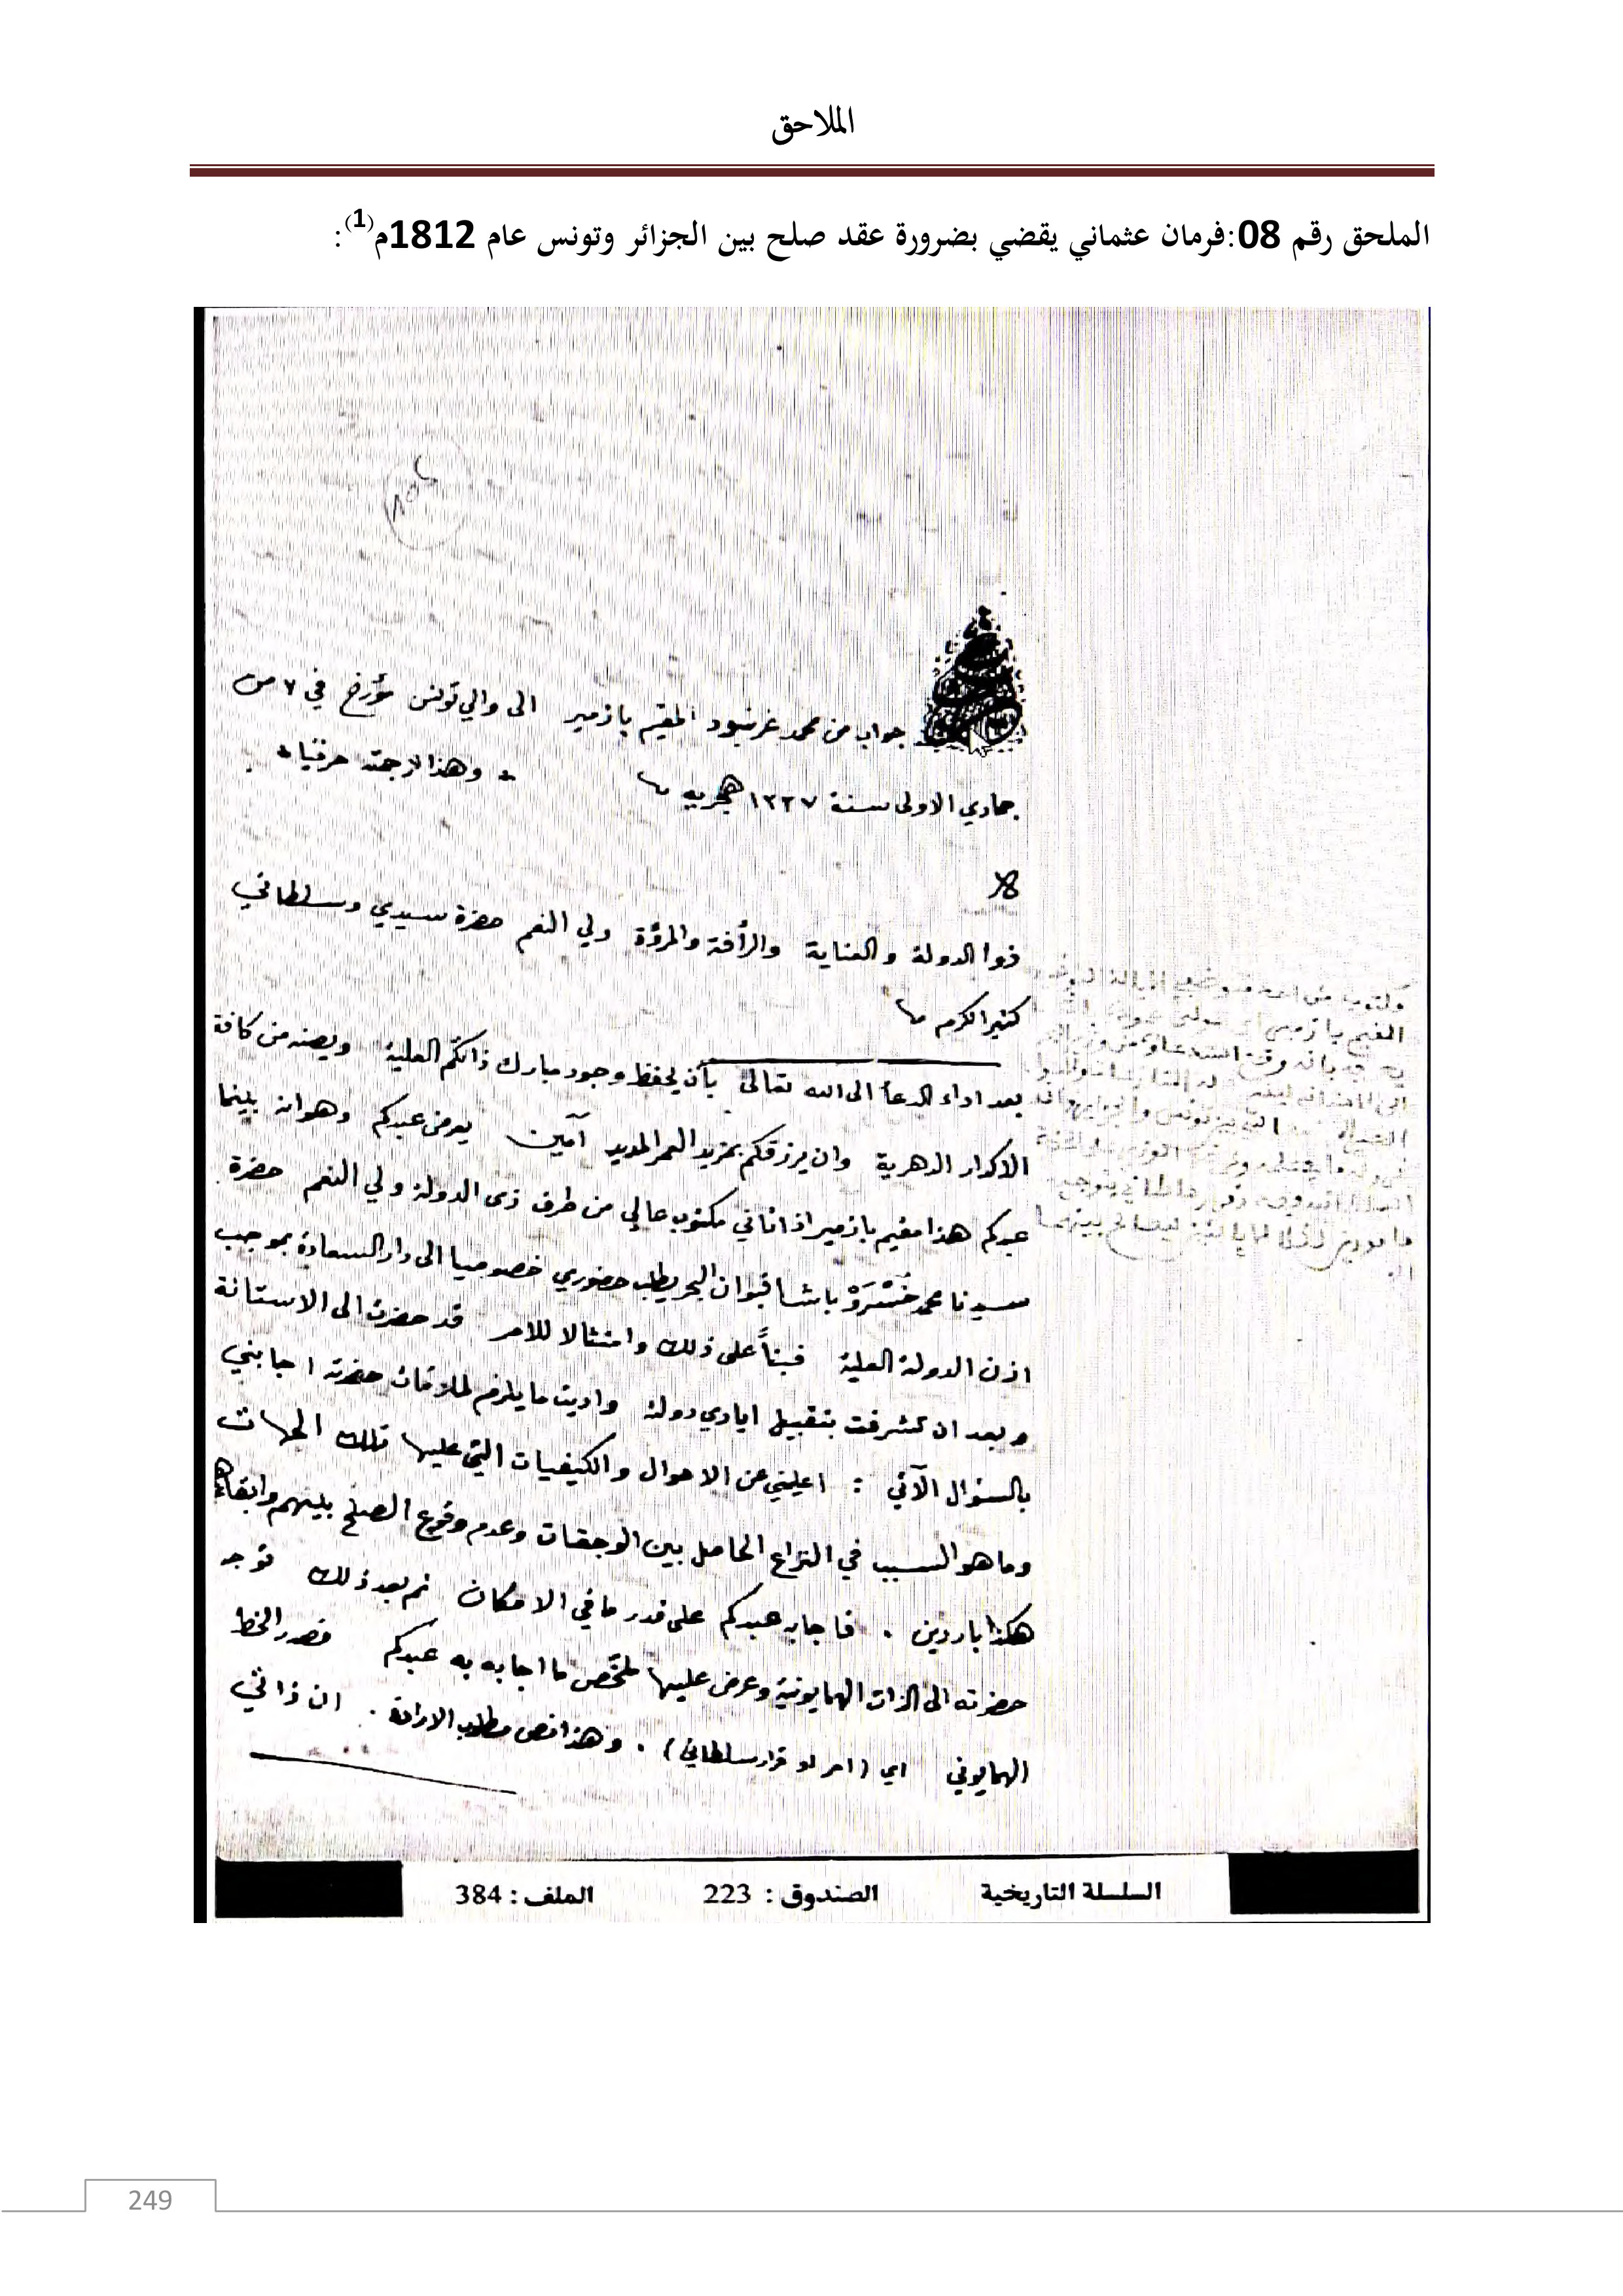 الملاحق
الملحق رقم 08:فرمان عثماني يقضي بضرورة عقد صلح بين الجزائر وتونس عام 1812م(1):
جواب من محمد غرنبود المقيم بازمير الى والي تونس مؤرخ في ٧ من
جمادي الاولى سنة ١٢٢٧ هجريه + وهذا ترجمته حرفيا +
ذوا الدولة والعناية والرأفة والمروّة ولي النعم حضرة سيدي وسلطاني
كثير الكرم
بعد اداء الدعأ الى الله تعالى بأن يحفظ وجود مبارك ذاتكم العلية ويصنه من كافة
الاكدار الدهرية وان يرزقكم بمزيد العمر المديد آمين يعرض عبدكم وهوانه بينما
عبدكم هذا مقيم بازمير اذ اتاني مكتوب عالي من طرف ذى الدولة ولي النعم حضرة
سيدنا محمد خُسْرَوْ باشا قبوان البحر يطلب حضوري خصوصيا الى دار السعادة بموجب
اذن الدولة العلية فبنأً على ذلك وامتثالا للامر قد حضرت الى الاستانة
وبعد ان تشرفت بتقبيل ايادي دولته واديت ما يلزم لملاقات حضرته اجابني
بالسئوال الآتي : اعلمني عن الاحوال والكيفيات التي عليها تلك الجهات
وما هو السبب في النزاع الحاصل بين الوجقات وعدم وقوع الصلح بينهم وابقاهم
هكذا باردين . فاجابه عبدكم على قدر ما في الامكان ثم بعد ذلك توجه
حضرته الى الذات الهمايونية وعرض عليها ملخّص ما اجابه به عبدكم فصدر الخط
الهمايوني اي (امر او قرار سلطاني) . وهذا نص مطلوب الارادة . ان ذاتي
السلسلة التاريخية الصندوق : 223 الملف : 384
249